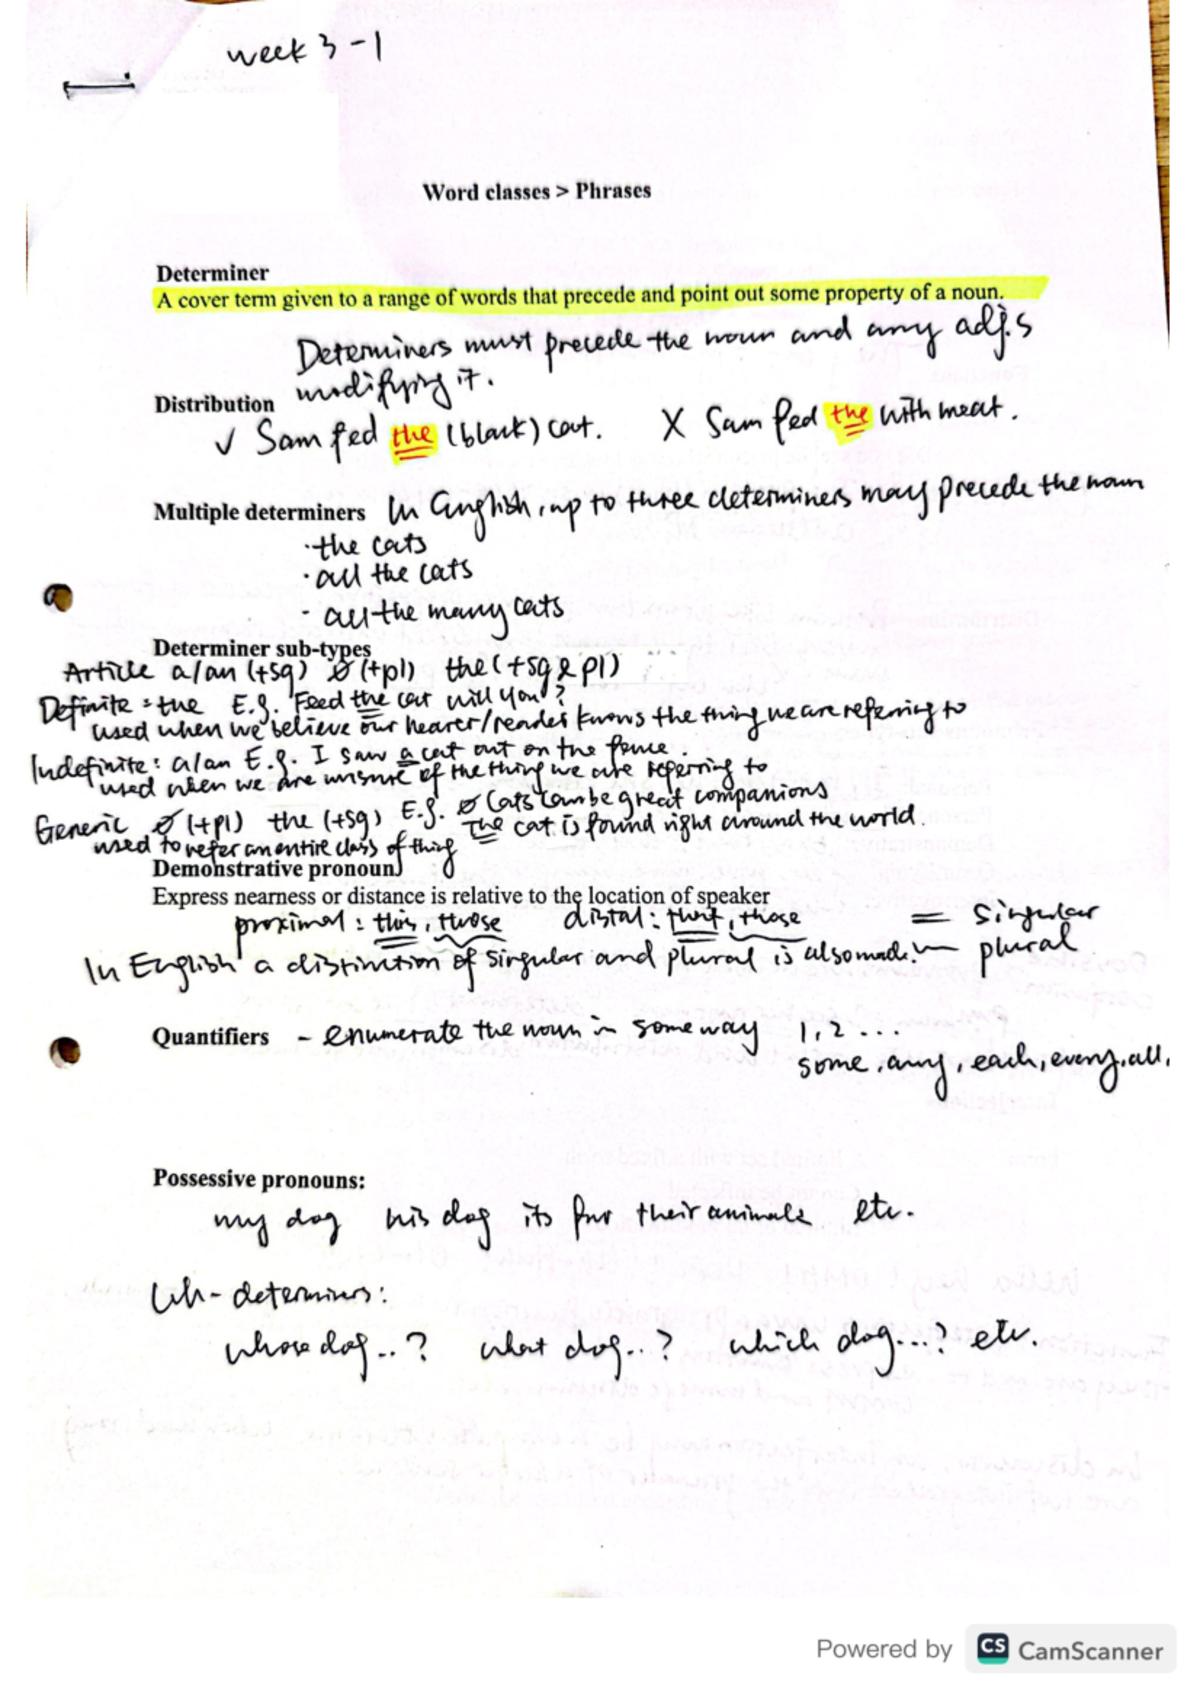 week 3 - 1
Word classes > Phrases
Determiner
A cover term given to a range of words that precede and point out some property of a noun.
Determiners must precede the noun and any adj.s
modifying it.
Distribution
✓ Sam fed the (black) cat. X Sam fed the with meat.
Multiple determiners In English, up to three determiners may precede the noun
· the cats
· all the cats
· all the many cats
Determiner sub-types
Article a/an (+sg) ∅ (+pl) the (+sg & pl)
Definite: the E.g. Feed the cat will you?
used when we believe our hearer/reader knows the thing we are referring to
Indefinite: a/an E.g. I saw a cat out on the fence.
used when we are unsure of the thing we are referring to
Generic ∅ (+pl) the (+sg) E.g. ∅ Cats can be great companions
The cat is found right around the world.
used to refer an entire class of thing
Demonstrative pronoun
Express nearness or distance is relative to the location of speaker
proximal: this, those distal: that, those = singular
In English a distinction of singular and plural is also made. plural
Quantifiers - enumerate the noun in some way 1, 2 ...
some, any, each, every, all,
Possessive pronouns:
my dog his dog its fur their animals etc.
Wh- determiners:
whose dog..? what dog..? which dog...? etc.
Powered by CS CamScanner